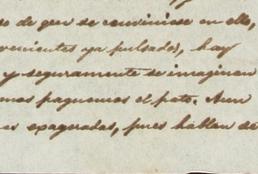 de que se convinicse en ello,
venientes ya pulsados, hay
y seguramente se imaginan
mos paguemos el pato. Aun
es exageradas, pues hablan de